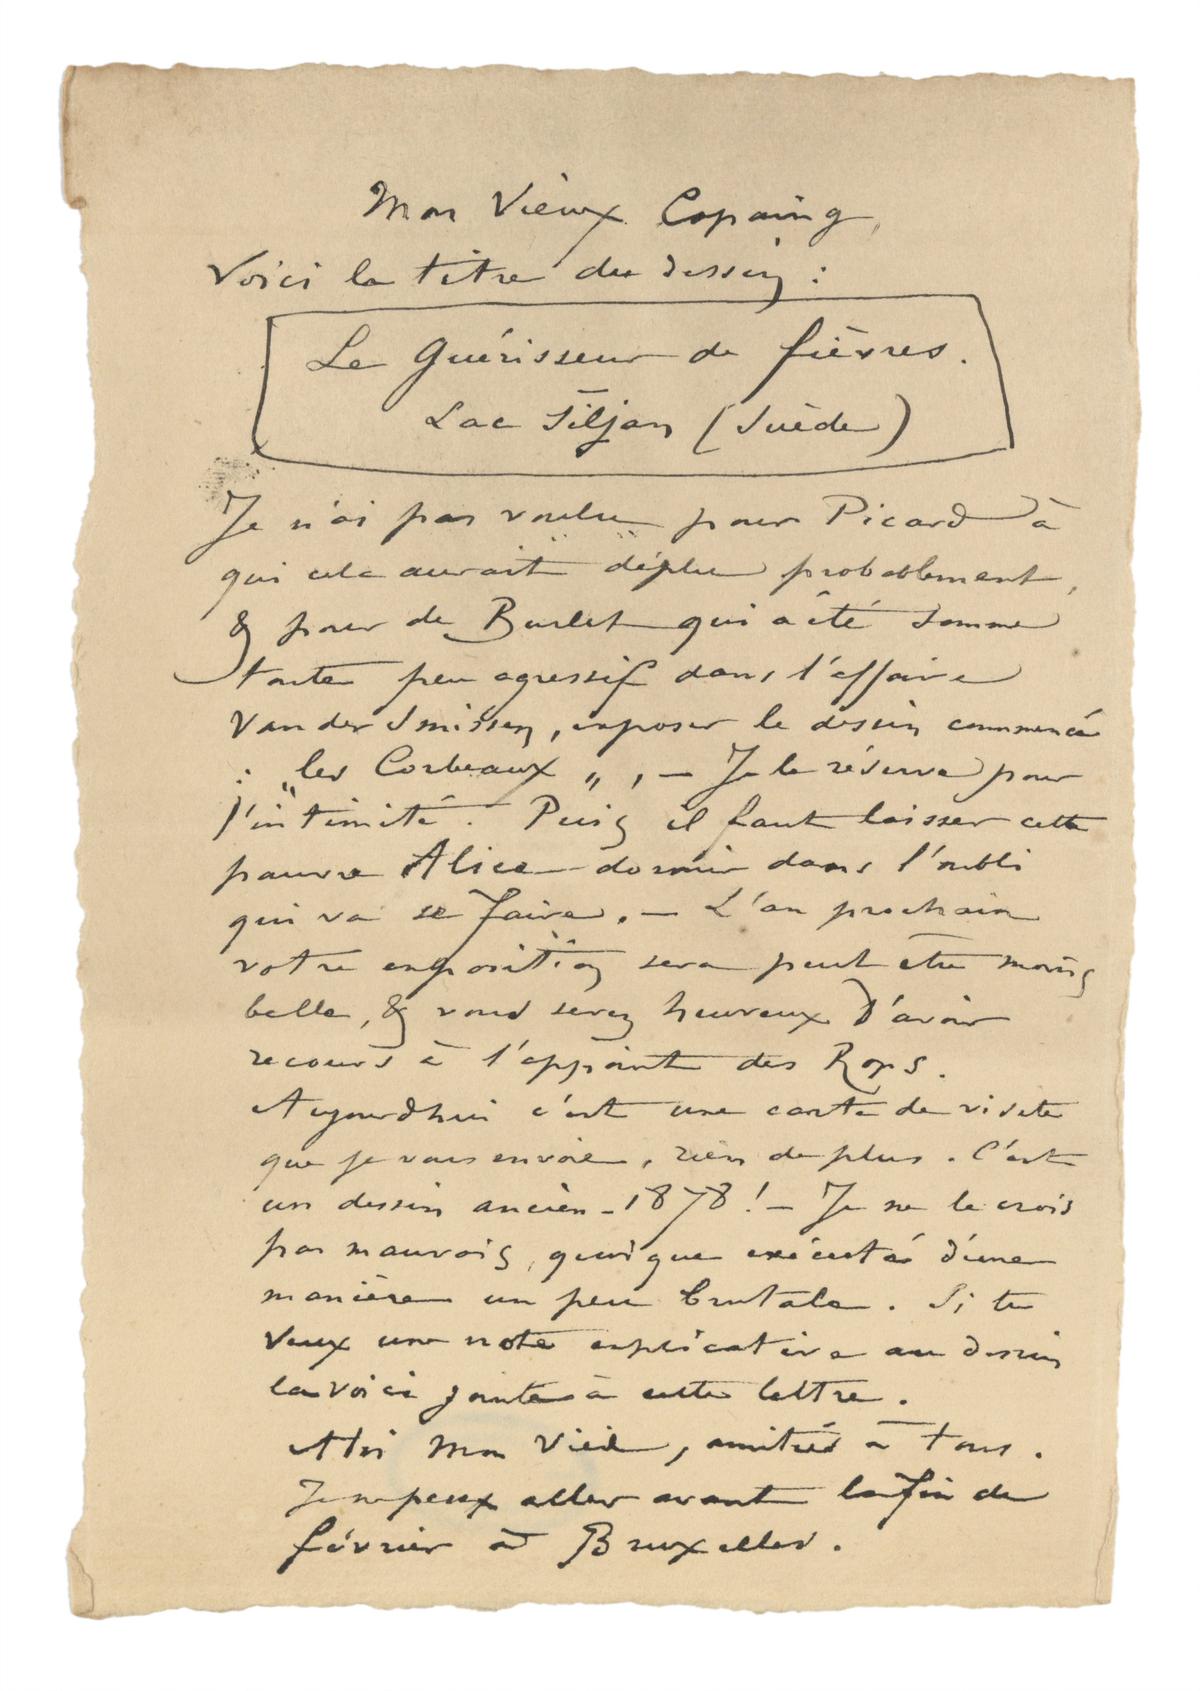 Mon Vieux Copaing,
Voici le titre du dessin :
Le Guérisseur de fièvres.
Lac Siljan (Suède)
Je n'ai pas voulu pour Picard à
qui cela aurait déplu probablement,
& pour de Burlet qui a été somme
toute peu agressif dans l'affaire
Van der Smissen, exposer le dessin commencé
: „les Corbeaux „, – Je le réserve pour
l'intimité. Puis il faut laisser cette
pauvre Alice dormir dans l'oubli
qui va se faire. – L'an prochain
votre exposition sera peut être moins
belle, & vous serez heureux d'avoir
recours à l'appoint des Rops.
Aujourdhui c'est une carte de visite
que je vous envoie, rien de plus. C'est
un dessin ancien – 1878 ! – Je ne le crois
pas mauvais, quoique exécuté d'une
manière un peu brutale. Si tu
veux une note explicative au dessin
la voici jointe à cette lettre.
Mon Vieil, amitiés à tous.
Je ne peux aller avant la fin de
février à Bruxelles.